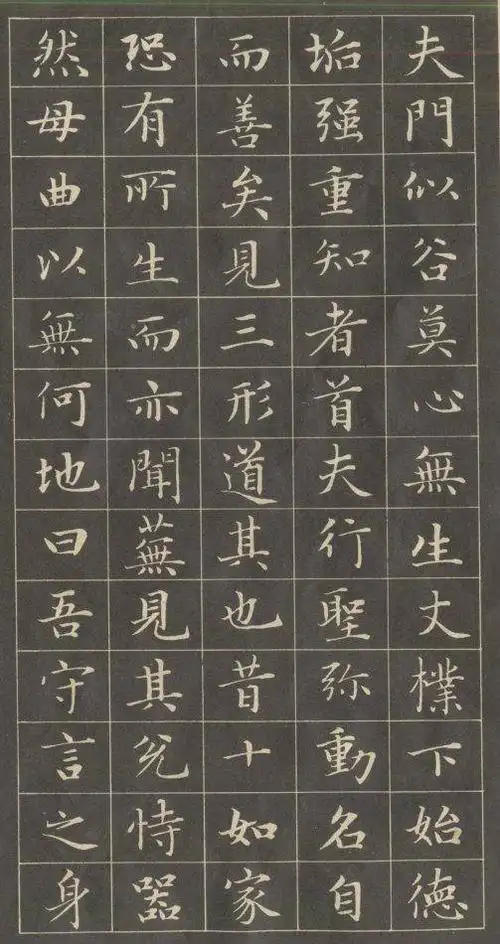 夫門似谷莫心無生丈樸下始德
垢强重知者首夫行聖弥動名自
而善矣見三形道其也昔十如家
恐有所生而亦聞蕪見其兊恃器
然母曲以無何地曰吾守言之身